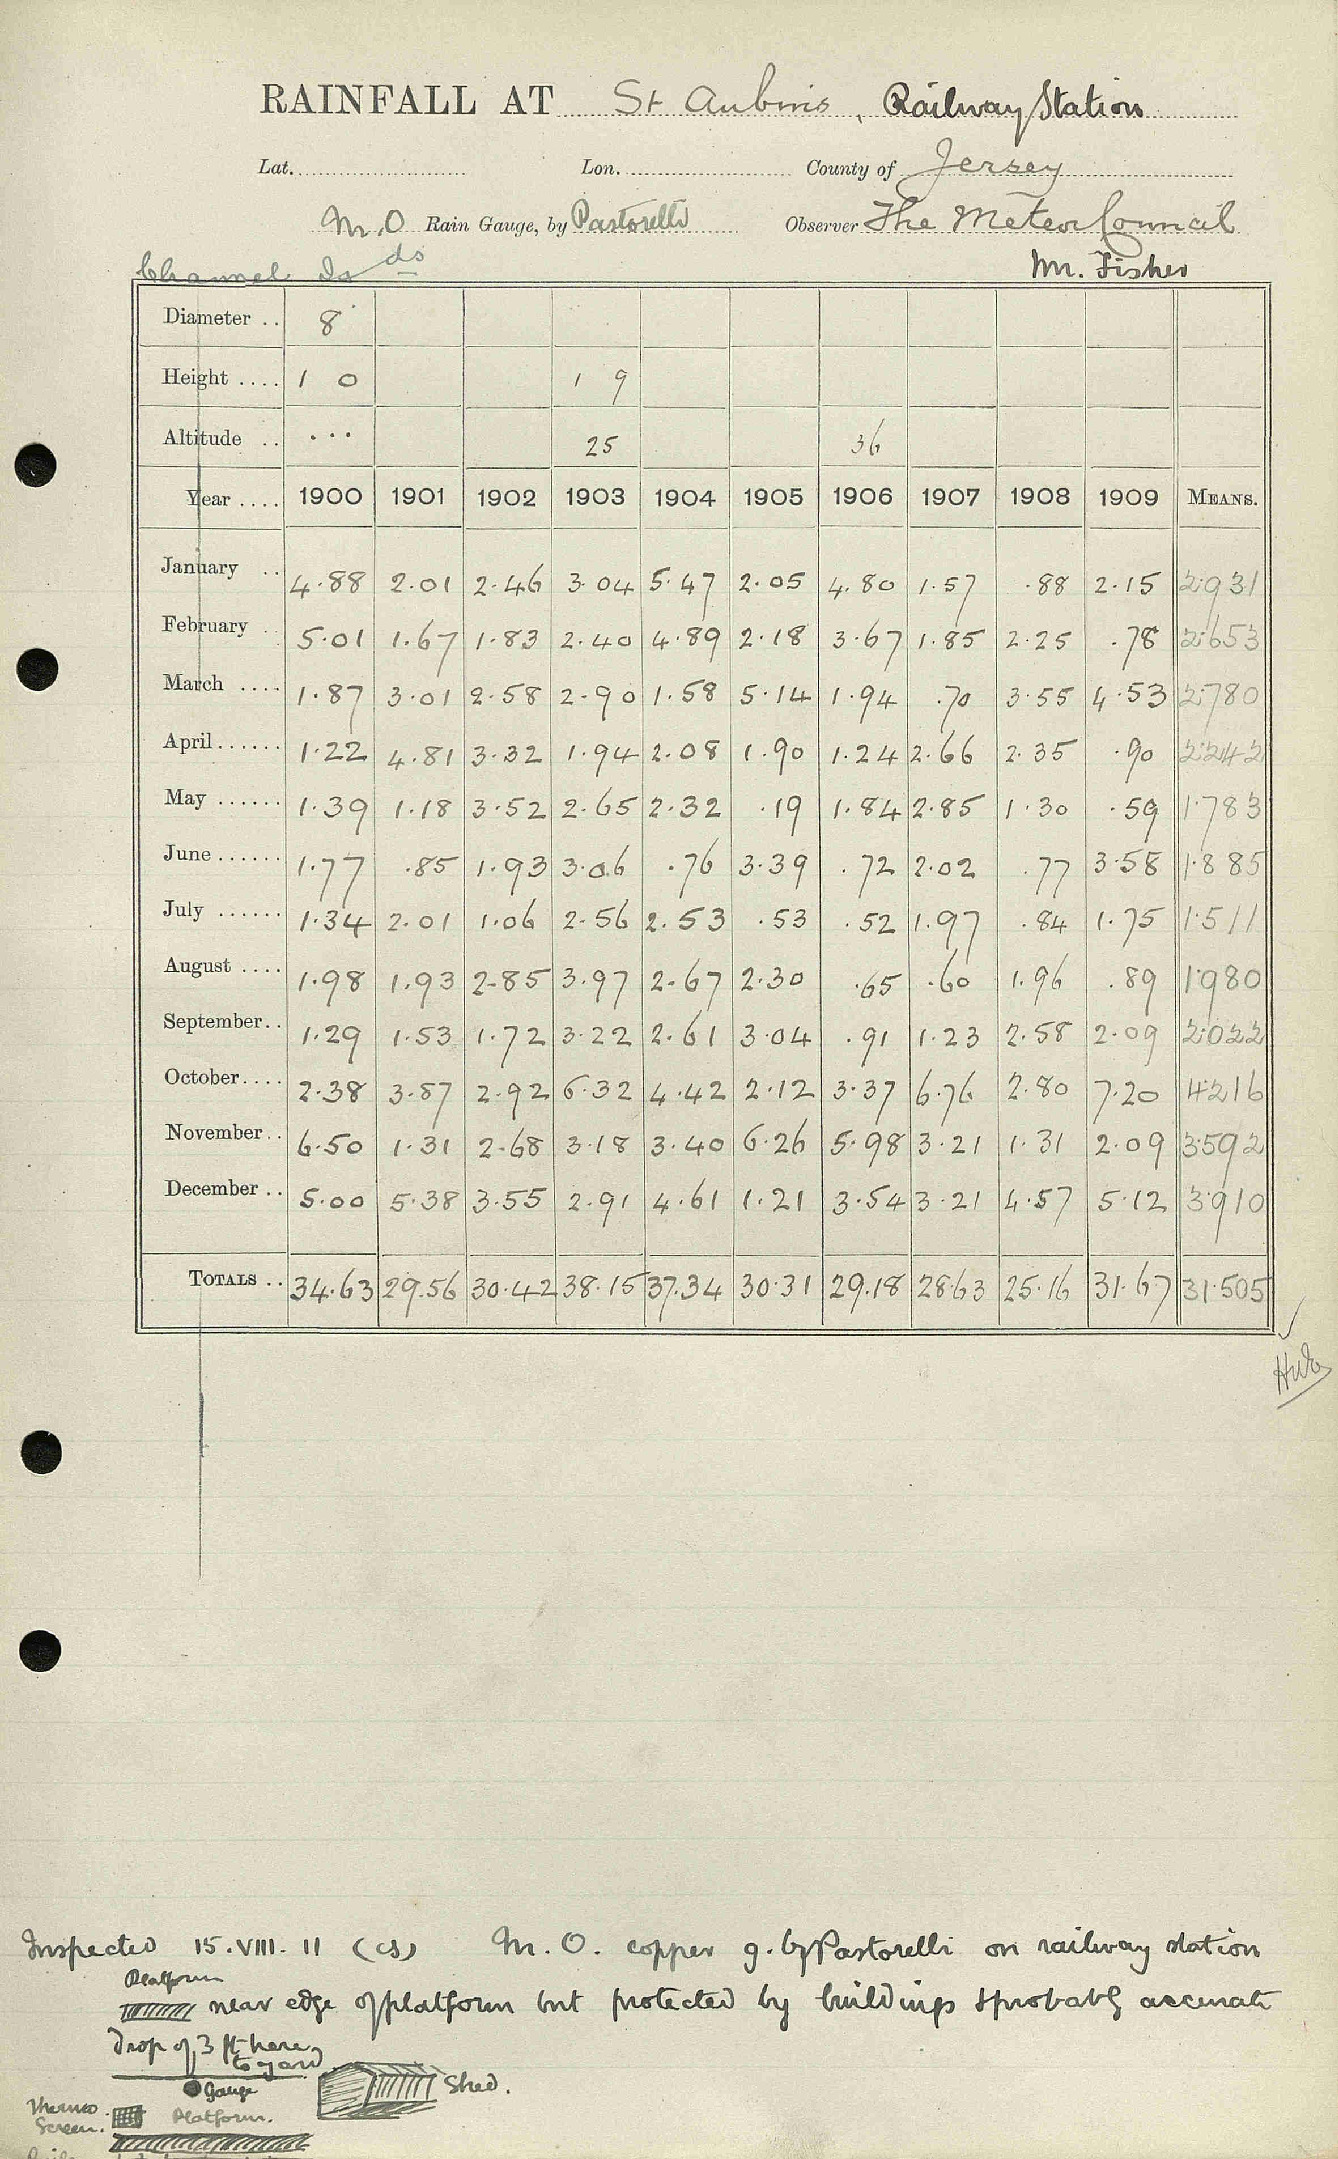 RAINFALL AT St Aubins, Railway Station
Lat. Lon. County of Jersey
M.O Rain Gauge, by Pastorelli Observer The Meteor Council
Channel Is ds Mr. Fisher
Diameter .. 8
Height .... 1 0 1 9
Altitude .. ... 25 36
Year .... 1900 1901 1902 1903 1904 1905 1906 1907 1908 1909 MEANS.
January .. 4.88 2.01 2.46 3.04 5.47 2.05 4.80 1.57 .88 2.15 2.931
February .. 5.01 1.67 1.83 2.40 4.89 2.18 3.67 1.85 2.25 .78 2.653
March .... 1.87 3.01 2.58 2.90 1.58 5.14 1.94 .70 3.55 4.53 2.780
April ...... 1.22 4.81 3.32 1.94 2.08 1.90 1.24 2.66 2.35 .90 2.242
May ...... 1.39 1.18 3.52 2.65 2.32 .19 1.84 2.85 1.30 .59 1.783
June ...... 1.77 .85 1.93 3.06 .76 3.39 .72 2.02 .77 3.58 1.885
July ...... 1.34 2.01 1.06 2.56 2.53 .53 .52 1.97 .84 1.75 1.511
August .... 1.98 1.93 2.85 3.97 2.67 2.30 .65 .60 1.96 .89 1.980
September .. 1.29 1.53 1.72 3.22 2.61 3.04 .91 1.23 2.58 2.09 2.022
October .... 2.38 3.87 2.92 6.32 4.42 2.12 3.37 6.76 2.80 7.20 4.216
November .. 6.50 1.31 2.68 3.18 3.40 6.26 5.98 3.21 1.31 2.09 3.592
December .. 5.00 5.38 3.55 2.91 4.61 1.21 3.54 3.21 4.57 5.12 3.910
TOTALS .. 34.63 29.56 30.42 38.15 37.34 30.31 29.18 28.63 25.16 31.67 31.505
Inspected 15.VIII.11 (CS) M.O. copper g. by Pastorelli on railway station
Platform
near edge of platform but protected by buildings & probably accurate
Drop of 3 ft here
to yard
Gauge
Shed.
Thermo
Screen.
Platform.